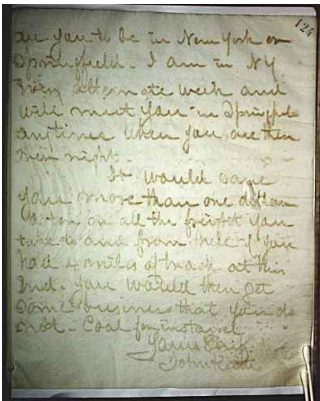 124
are you to be in New York or
Springfield - I am in NY
every alternate week and
will meet you in Springfield
anytime when you are there
over night.
It would save
you more than one dollar
a ton on all the freight you
take to and from here if you
had 4 miles of track at this
End - you would then get
some business that you do
not - Coal for instance
Yours truly
John